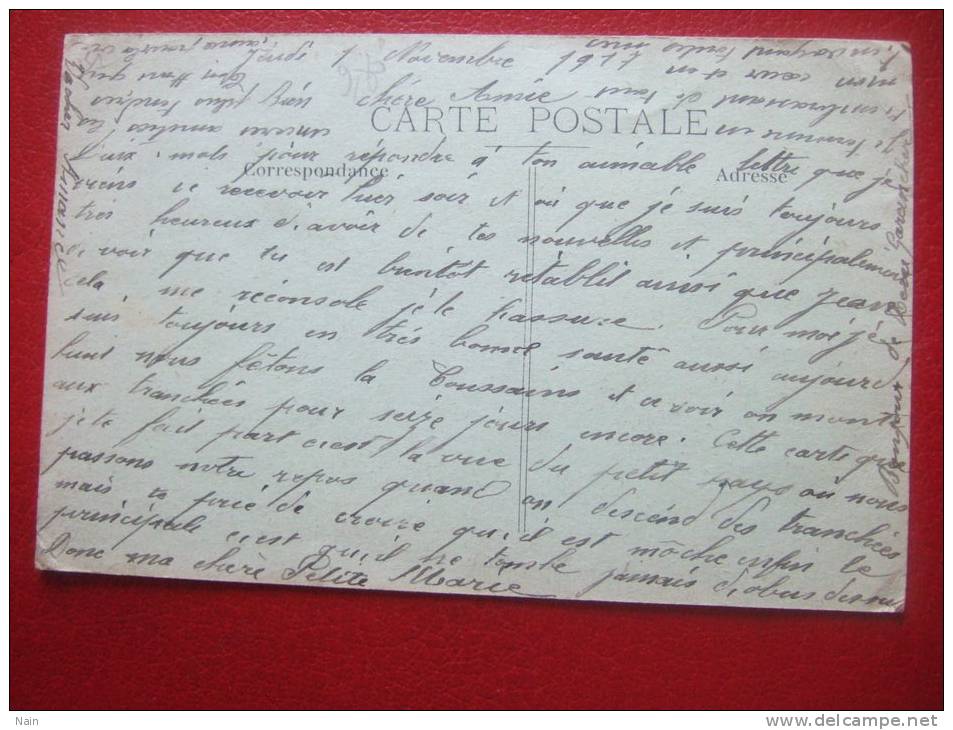 Jeudi 1 Novembre 1917
bien chère Amie
CARTE POSTALE
Correspondance
Adresse
Deux mots pour répondre à ton aimable lettre que je
viens de recevoir hier soir et où que je suis toujours
très heureux d'avoir de tes nouvelles et principalement
de voir que tu est bientôt rétablit ainsi que Jean
cela me réconsole je te l'assure. Pour moi je
suis toujours en très bonne santé aussi aujourd
huit nous fêtons la Toussaint et ce soir on monte
aux tranchées pour seize jours encore. Cette carte que
je te fait part c'est la vue du petit pays où nous
passons notre repos quand on descend des tranchées
mais te prié de croire qu'il est môche enfin le
principale c'est qu'il ne tombe jamais d'obus dessus
Donc ma chère Petite Marie
Bonjour de
Nain
www.delcampe.net